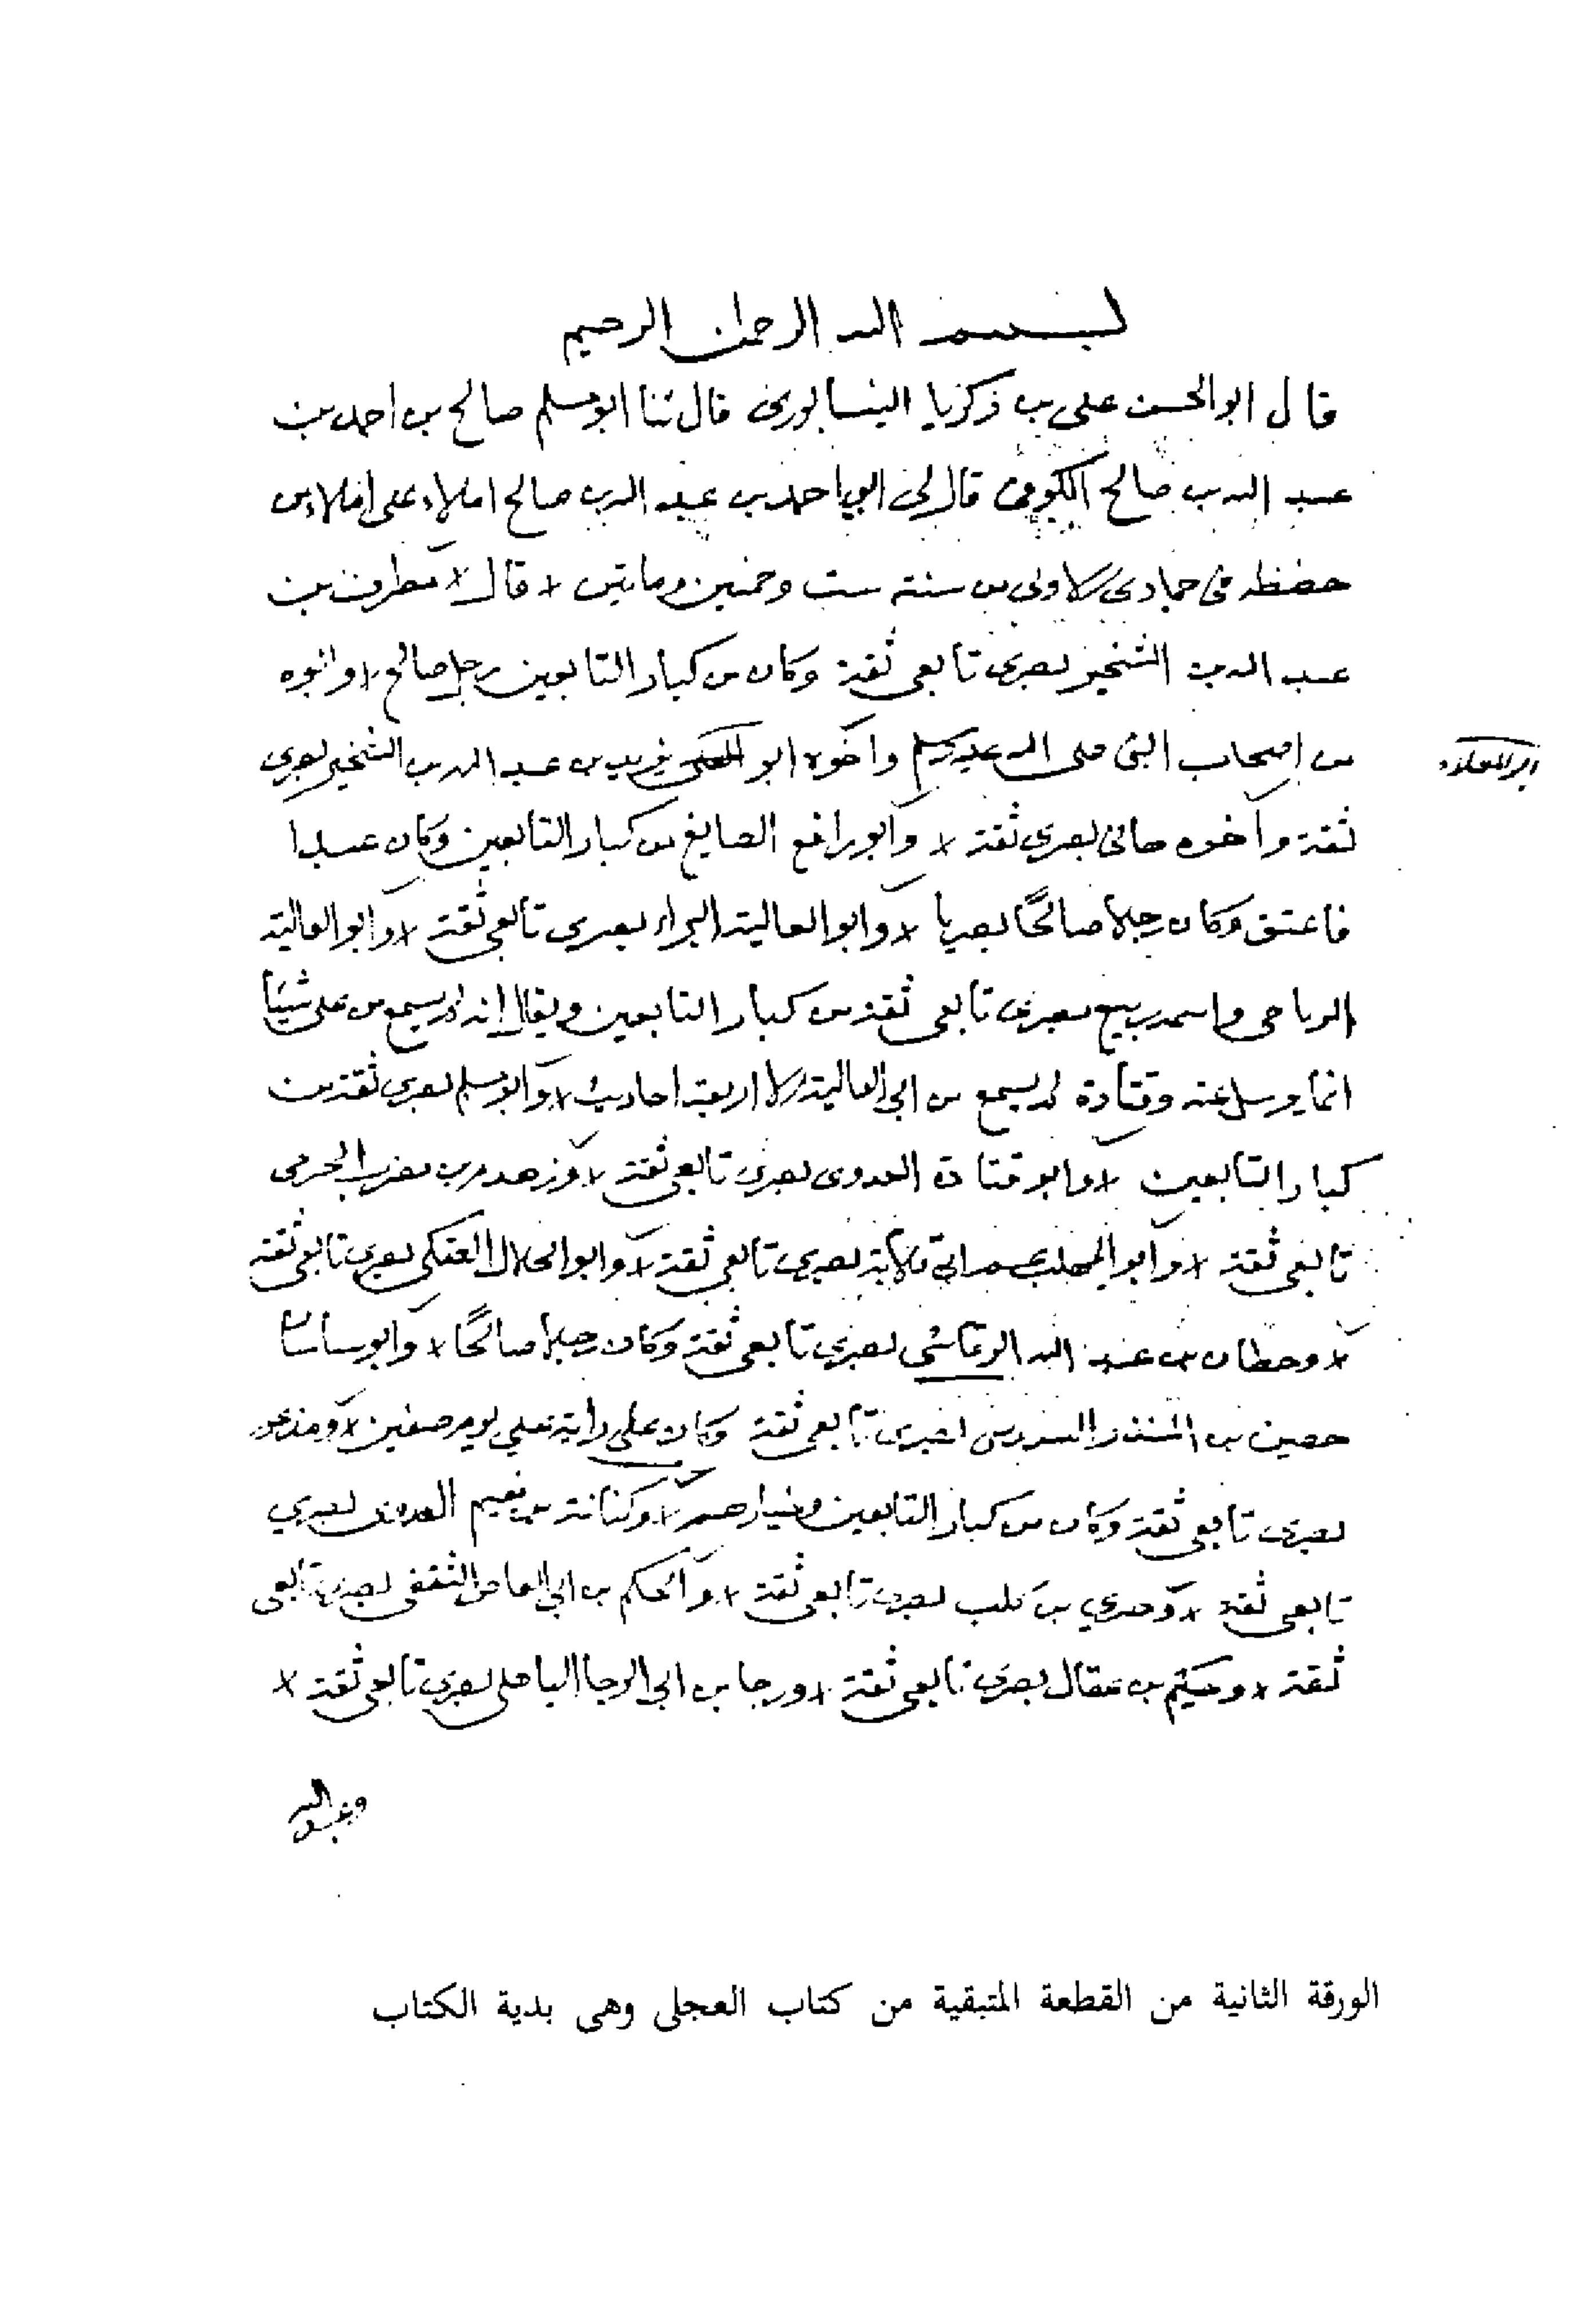 بسم الله الرحمن الرحيم
قال ابو الحسن على بن زكريا النيسابورى قال ثنا ابو مسلم صالح بن احمد بن
عبد الله بن صالح الكوفى قال لى ابى احمد بن عبد الله بن صالح املاء على املاء من
حفظه فى جمادى الاولى من سنة ست وخمسين ومايتين قال مطرف بن
عبد الله بن الشخير بصرى تابعى ثقة وكان من كبار التابعين رجل صالح وابوه
من اصحاب النبى صلى الله عليه وسلم واخوه ابو يزيد بن عبد الله بن الشخير بصرى
ابو العلاء
ثقة واخوه هانى بصرى ثقة وابو رافع الصايغ من كبار التابعين وكان عبدا
فاعتق وكان رجلا صالحا بصريا وابو العالية البراء بصرى تابعى ثقة وابو العالية
الرياحى واسمه ربيع بصرى تابعى ثقة من كبار التابعين ويقال انه لم يسمع من على شيئا
انما يرسل عنه وقتادة لم يسمع من ابى العالية الا اربعة احاديث وابو مسلم بصرى ثقة من
كبار التابعين وابو قتادة العدوى بصرى تابعى ثقة وزهدم بن مضرب الجرمى
تابعى ثقة وابو المهلب عم ابى قلابة بصرى تابعى ثقة وابو الحلال العتكى بصرى تابعى ثقة
وحطان بن عبد الله الرقاشى بصرى تابعى ثقة وكان رجلا صالحا وابو ساسان
حصين بن المنذر السدوسى بصرى تابعى ثقة وكان على راية على يوم صفين ومذعور
بصرى تابعى ثقة وكان من كبار التابعين وخيارهم وكنانة بن نعيم العدوى بصري
تابعى ثقة وجري بن كليب بصرى تابعى ثقة والحكم بن ابى العاص الثقفى بصرى تابعى
ثقة وحكيم بن عقال بصرى تابعى ثقة ورجا بن ابى الرجا الباهلى بصرى تابعى ثقة
وعبد الله
الورقة الثانية من القطعة المتبقية من كتاب العجلى وهى بدية الكتاب